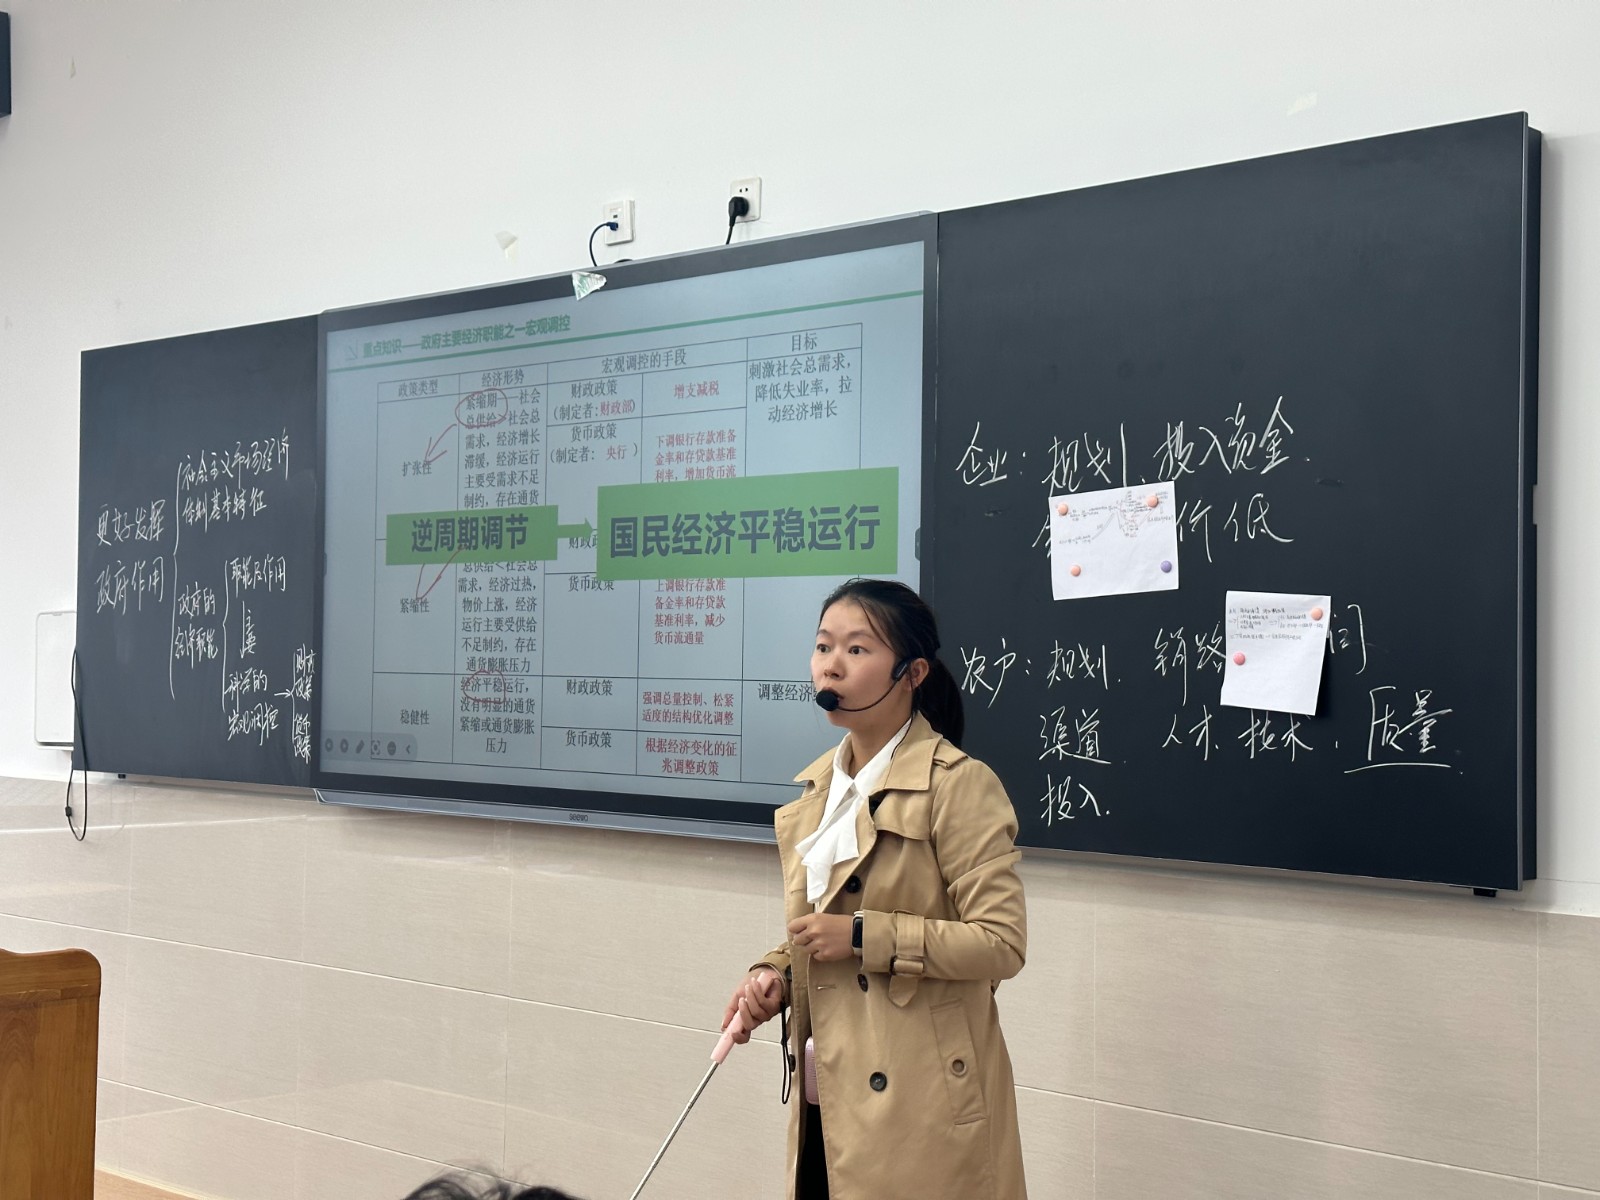 更好发挥
政府作用
社会主义市场经济
体制基本特征
政府的
经济职能
职能及作用
主要
科学的
宏观调控
财政
政策
货币
政策
重点知识——政府主要经济职能之一宏观调控
政策类型
经济形势
宏观调控的手段
目标
扩张性
紧缩期——社会
总供给>社会总
需求，经济增长
滞缓，经济运行
主要受需求不足
制约，存在通货
财政政策
（制定者：财政部）
增支减税
货币政策
（制定者： 央行 ）
下调银行存款准备
金率和存贷款基准
利率，增加货币流
刺激社会总需求，
降低失业率，拉
动经济增长
逆周期调节
国民经济平稳运行
紧缩性
总供给<社会总
需求，经济过热，
物价上涨，经济
运行主要受供给
不足制约，存在
通货膨胀压力
财政政
货币政策
上调银行存款准
备金率和存贷款
基准利率，减少
货币流通量
稳健性
经济平稳运行，
没有明显的通货
紧缩或通货膨胀
压力
财政政策
强调总量控制、松紧
适度的结构优化调整
货币政策
根据经济变化的征
兆调整政策
调整经济
seewo
企业：规划、投入资金.
价低
农户：规划. 销路
渠道. 人才. 技术. 质量.
投入.